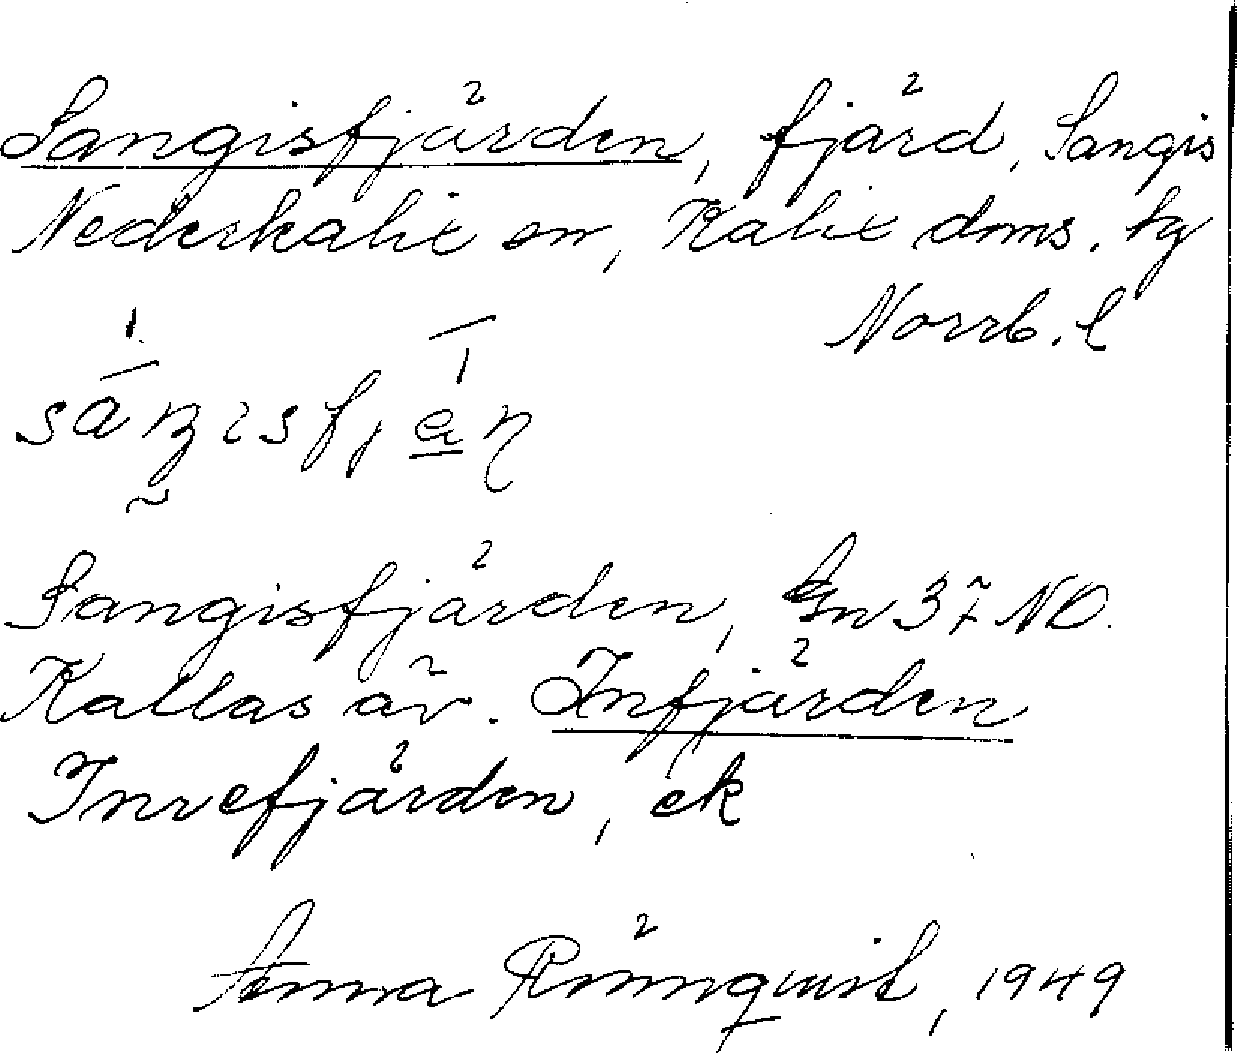 Sangisfjärden, fjärd, Sangis
Nederkalix sn, Kalix doms. tg
Norrb. l
Sangisfjärden, Gn 37 NO.
Kallas äv. Infjärden
Inrefjärden, ek
Anna Rönnqvist, 1949